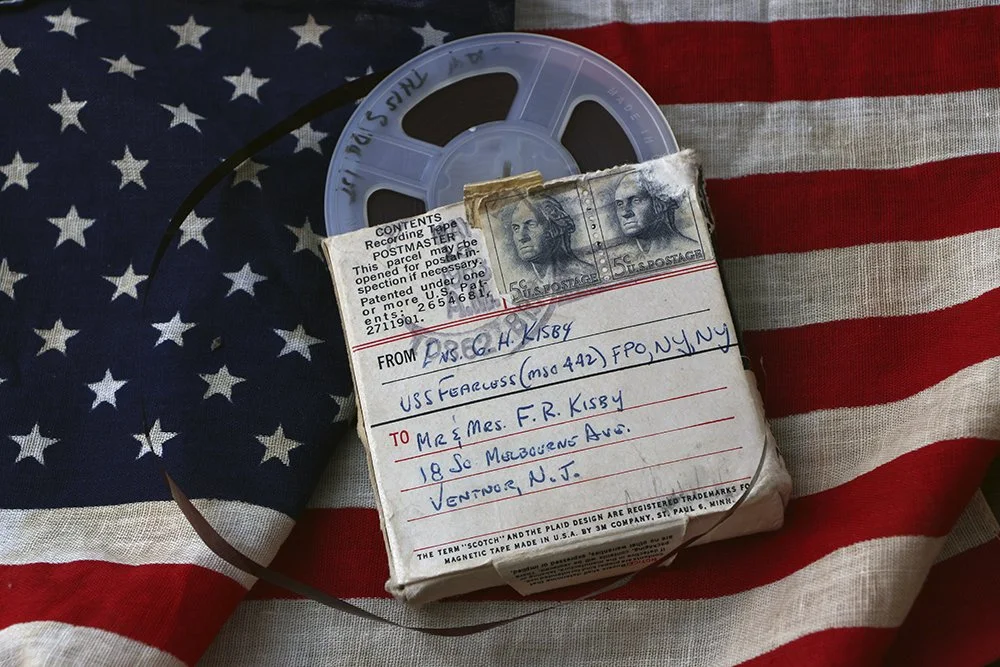 THIS SIDE
MADE IN
CONTENTS
Recording Tape
POSTMASTER
This parcel may be
opened for postal in-
spection if necessary.
Patented under one
or more U.S. Pat-
ents: 2654681,
2711901.
5¢ U.S. POSTAGE
5¢ U.S. POSTAGE
FROM ENS. G. H. KISBY
USS FEARLESS (MSO 442) FPO, NY, NY
TO MR & MRS. F. R. KISBY
18 SO MELBOURNE AVE.
VENTNOR, N.J.
THE TERM "SCOTCH" AND THE PLAID DESIGN ARE REGISTERED TRADEMARKS FO
MAGNETIC TAPE MADE IN U.S.A. BY 3M COMPANY, ST. PAUL 6, MINN.